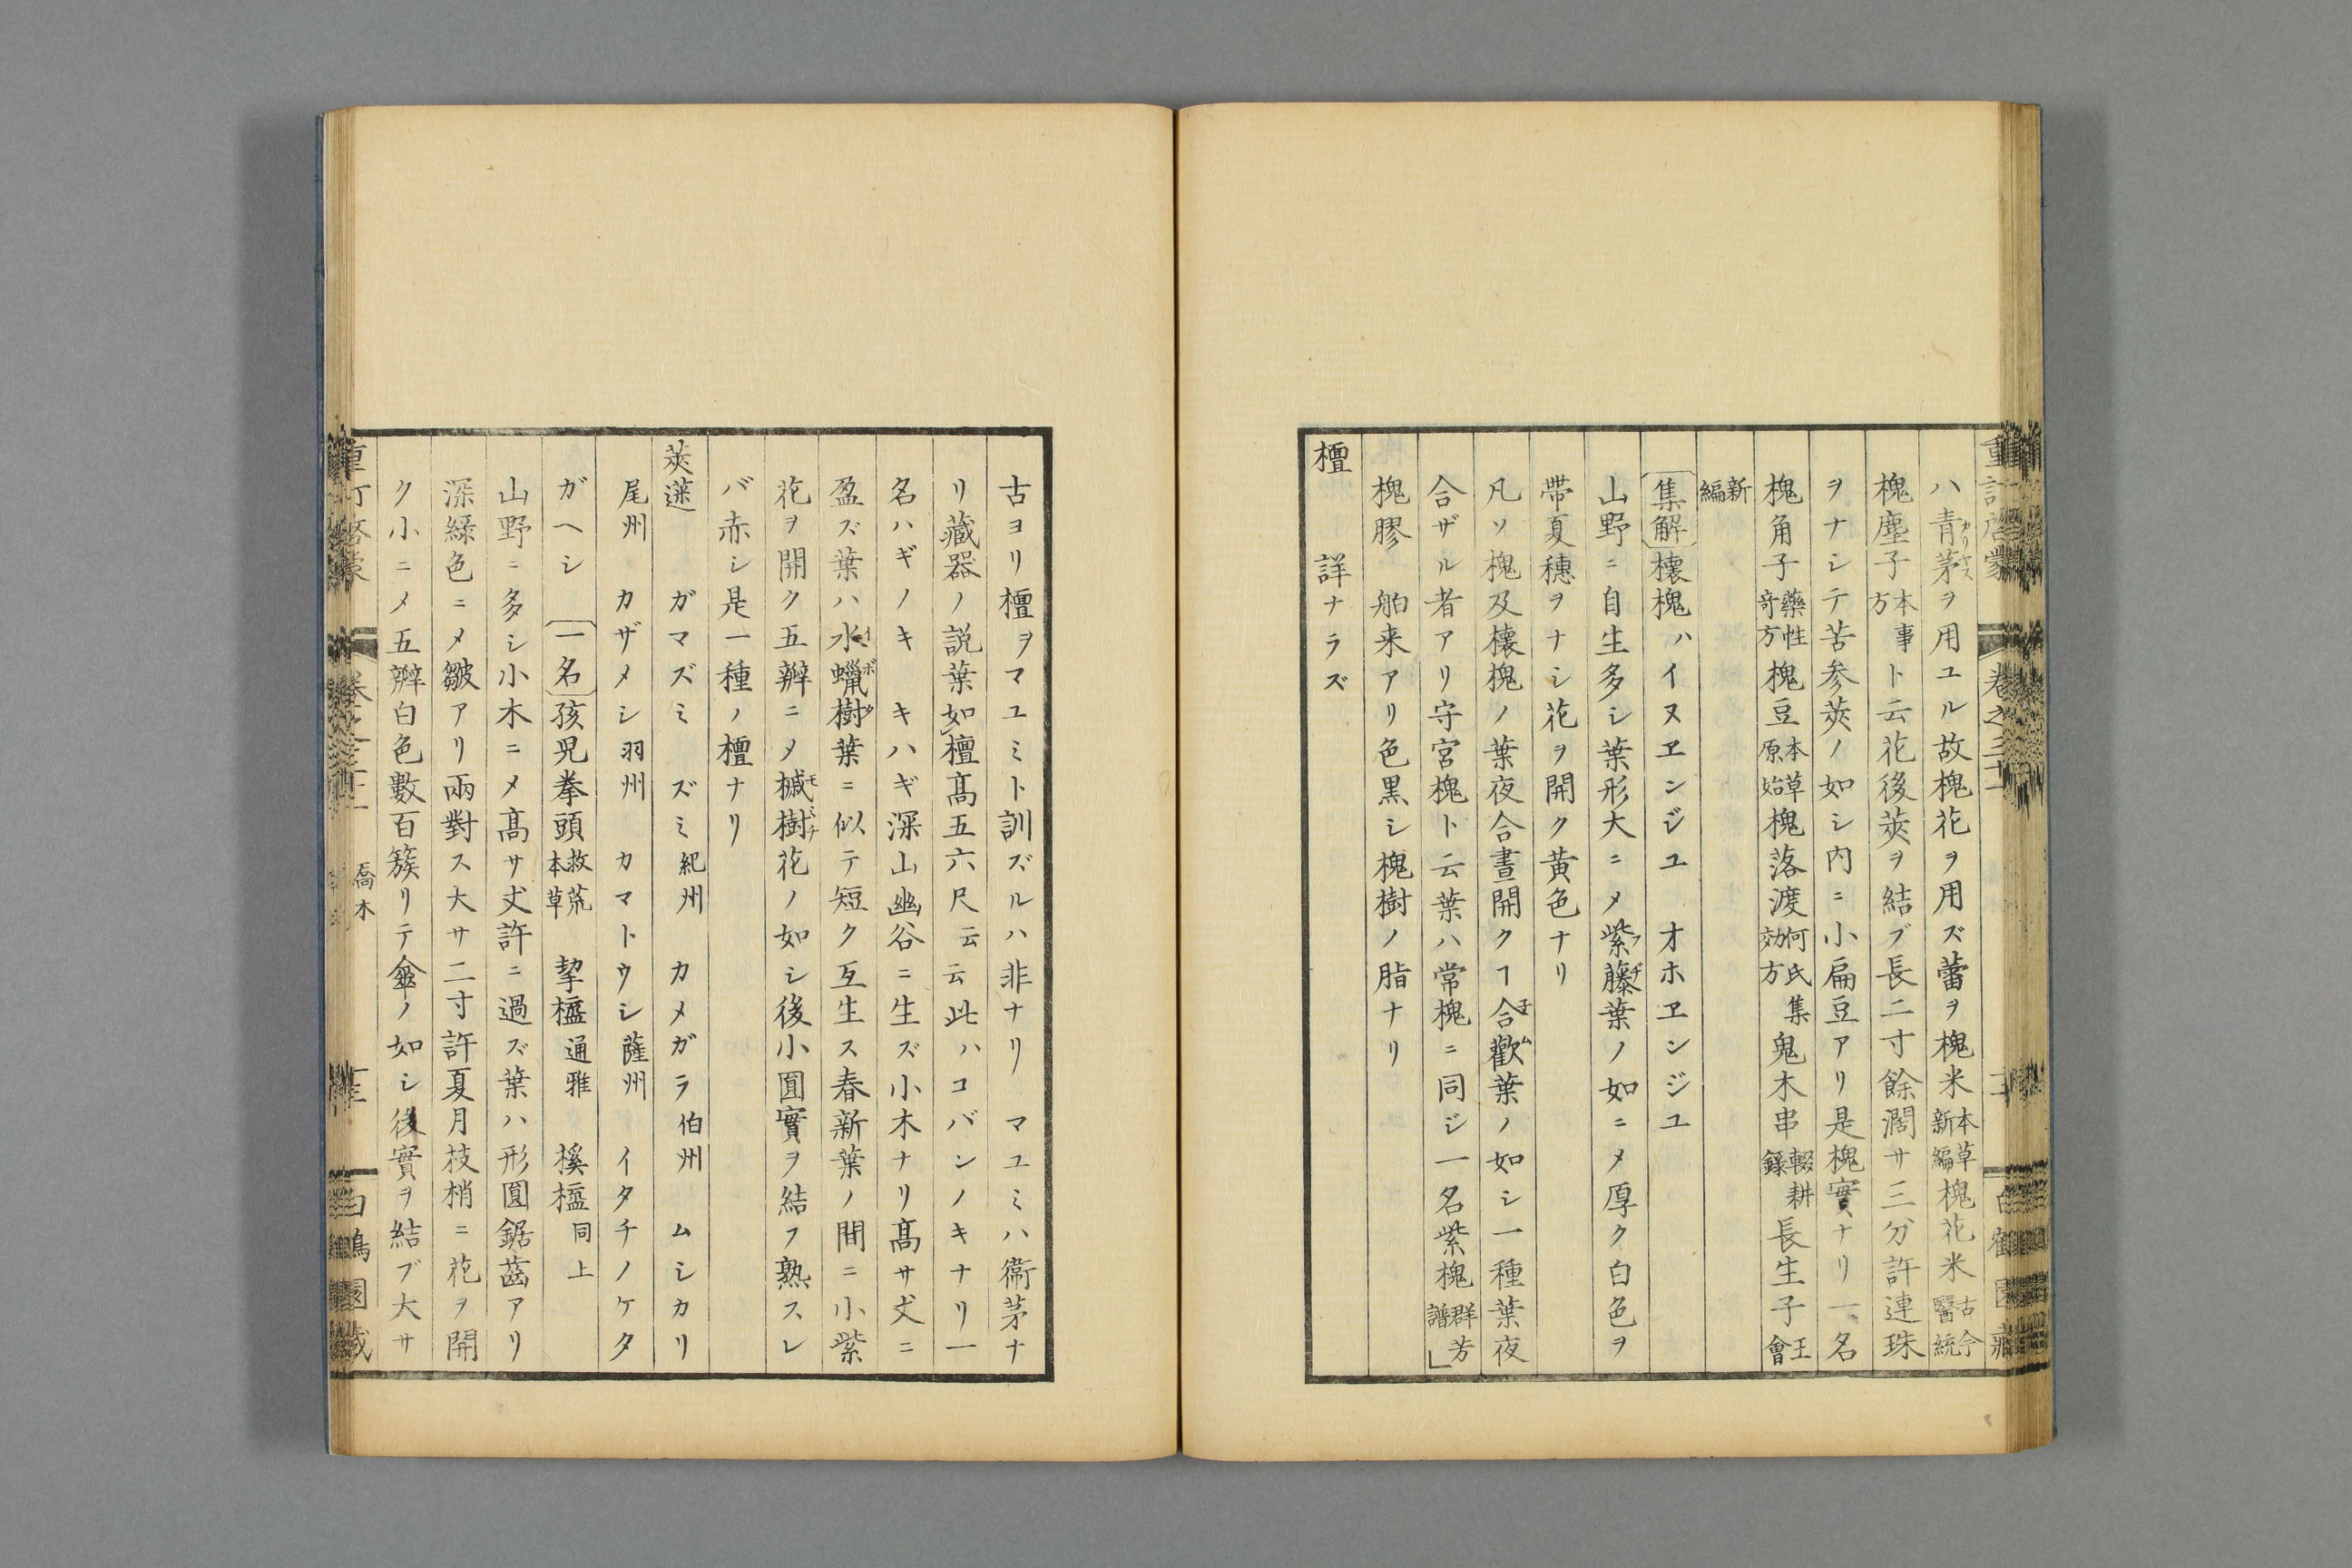 ハ青茅ヲ用ユル故槐花ヲ用ズ蕾ヲ槐米本草新編槐花米古今醫統
槐塵子本事方ト云花後莢ヲ結ブ長二寸餘濶サ三分許連珠
ヲナシテ苦參莢ノ如シ内ニ小扁豆アリ是槐實ナリ一名
槐角子藥性奇方槐豆本草原始槐落渡何氏集効方鬼木串輟耕録長生子王會
新編
集解櫰槐ハイヌヱンジユ オホヱンジユ
山野ニ自生多シ葉形大ニメ紫藤葉ノ如ニメ厚ク白色ヲ
帶夏穗ヲナシ花ヲ開ク黄色ナリ
凡ソ槐及櫰槐ノ葉夜合晝開クヿ合歡葉ノ如シ一種葉夜
合ザル者アリ守宮槐ト云葉ハ常槐ニ同ジ一名紫槐群芳譜」
槐膠 舶来アリ色黒シ槐樹ノ脂ナリ
檀 詳ナラズ
古ヨリ檀ヲマユミト訓ズルハ非ナリ マユミハ衞茅ナ
リ藏器ノ説葉如檀高五六尺云云此ハコバンノキナリ一
名ハギノキ キハギ深山幽谷ニ生ズ小木ナリ高サ丈ニ
盈ズ葉ハ水蠟樹葉ニ似テ短ク互生ス春新葉ノ間ニ小紫
花ヲ開ク五瓣ニメ槭樹花ノ如シ後小圓實ヲ結フ熟スレ
バ赤シ是一種ノ檀ナリ
莢蒾 ガマズミ ズミ紀州 カメガラ伯州 ムシカリ
尾州 カザメシ羽州 カマトウシ薩州 イタチノケタ
ガヘシ 一名孩兒拳頭救荒本草 挈橀通雅 槉橀同上
山野ニ多シ小木ニメ高サ丈許ニ過ズ葉ハ形圓鋸齒アリ
深緑色ニメ皺アリ兩對ス大サ二寸許夏月枝梢ニ花ヲ開
ク小ニメ五瓣白色數百簇リテ傘ノ如シ後實ヲ結ブ大サ
喬木